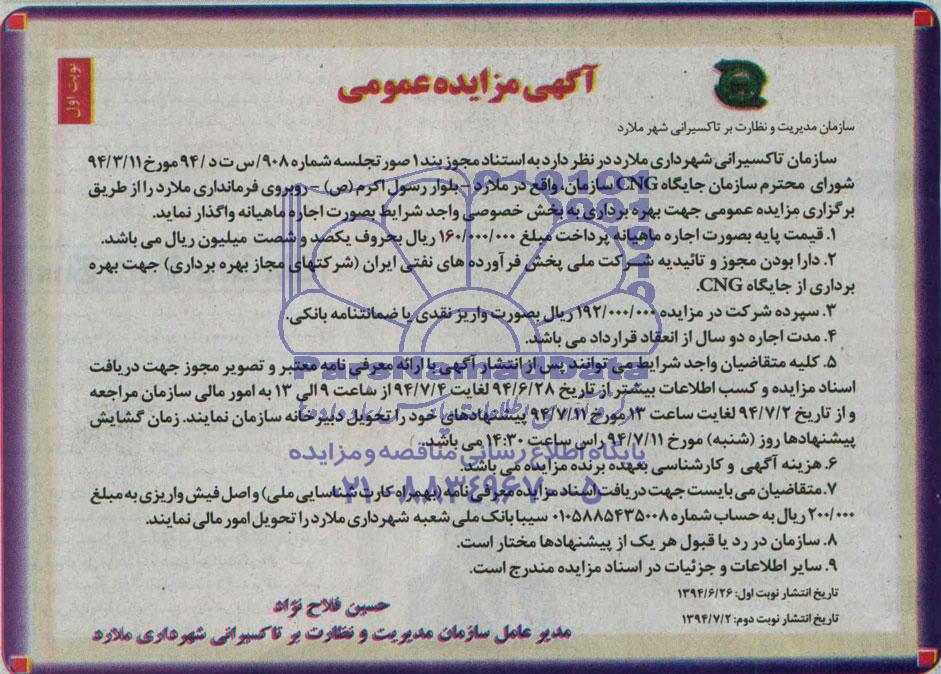 نوبت اول
آگهی مزایده عمومی
سازمان مدیریت و نظارت بر تاکسیرانی شهر ملارد
سازمان تاکسیرانی شهرداری ملارد در نظر دارد به استناد مجوز بند ۱ صورتجلسه شماره ۹۰۸/س ت د/۹۴ مورخ ۹۴/۳/۱۱
شورای محترم سازمان جایگاه CNG سازمان، واقع در ملارد - بلوار رسول اکرم (ص) - روبروی فرمانداری ملارد را از طریق
برگزاری مزایده عمومی جهت بهره برداری به بخش خصوصی واجد شرایط بصورت اجاره ماهیانه واگذار نماید.
۱. قیمت پایه بصورت اجاره ماهیانه پرداخت مبلغ ۱۶۰/۰۰۰/۰۰۰ ریال بحروف یکصد و شصت میلیون ریال می باشد.
۲. دارا بودن مجوز و تائیدیه شرکت ملی پخش فرآورده های نفتی ایران (شرکتهای مجاز بهره برداری) جهت بهره
برداری از جایگاه CNG.
۳. سپرده شرکت در مزایده ۱۹۲/۰۰۰/۰۰۰ ریال بصورت واریز نقدی یا ضمانتنامه بانکی.
۴. مدت اجاره دو سال از انعقاد قرارداد می باشد.
۵. کلیه متقاضیان واجد شرایط می توانند پس از انتشار آگهی با ارائه معرفی نامه معتبر و تصویر مجوز جهت دریافت
اسناد مزایده و کسب اطلاعات بیشتر از تاریخ ۹۴/۶/۲۸ لغایت ۹۴/۷/۴ از ساعت ۹ الی ۱۳ به امور مالی سازمان مراجعه
و از تاریخ ۹۴/۷/۲ لغایت ساعت ۱۳ مورخ ۹۴/۷/۱۱ پیشنهادهای خود را تحویل دبیرخانه سازمان نمایند. زمان گشایش
پیشنهادها روز (شنبه) مورخ ۹۴/۷/۱۱ راس ساعت ۱۴:۳۰ می باشد.
۶. هزینه آگهی و کارشناسی بعهده برنده مزایده می باشد.
۷. متقاضیان می بایست جهت دریافت اسناد مزایده معرفی نامه (بهمراه کارت شناسایی ملی) و اصل فیش واریزی به مبلغ
۲۰۰/۰۰۰ ریال به حساب شماره ۰۱۰۵۸۸۵۴۳۵۰۰۸ سیبا بانک ملی شعبه شهرداری ملارد را تحویل امور مالی نمایند.
۸. سازمان در رد یا قبول هر یک از پیشنهادها مختار است.
۹. سایر اطلاعات و جزئیات در اسناد مزایده مندرج است.
تاریخ انتشار نوبت اول: ۱۳۹۴/۶/۲۶
تاریخ انتشار نوبت دوم: ۱۳۹۴/۷/۲
حسین فلاح نژاد
مدیر عامل سازمان مدیریت و نظارت بر تاکسیرانی شهرداری ملارد
ParsNamadData
پایگاه اطلاع رسانی مناقصه و مزایده
۰۲۱-۸۸۳۴۹۶۷۰-۵